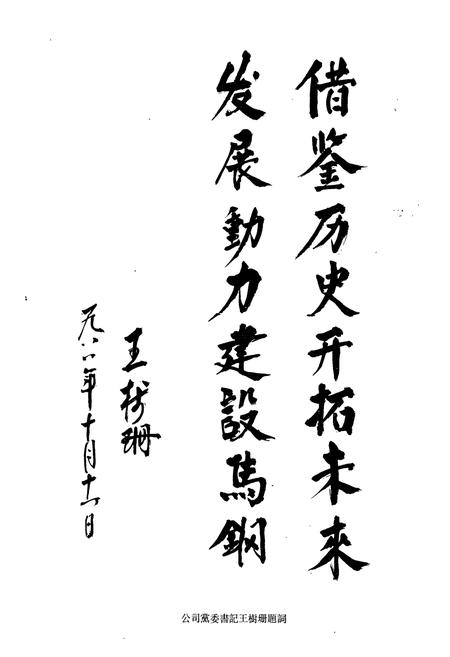 借鉴历史开拓未來
发展動力建設馬鋼
王树珊
一九八 年十月十 日
公司黨委書記王樹珊題詞